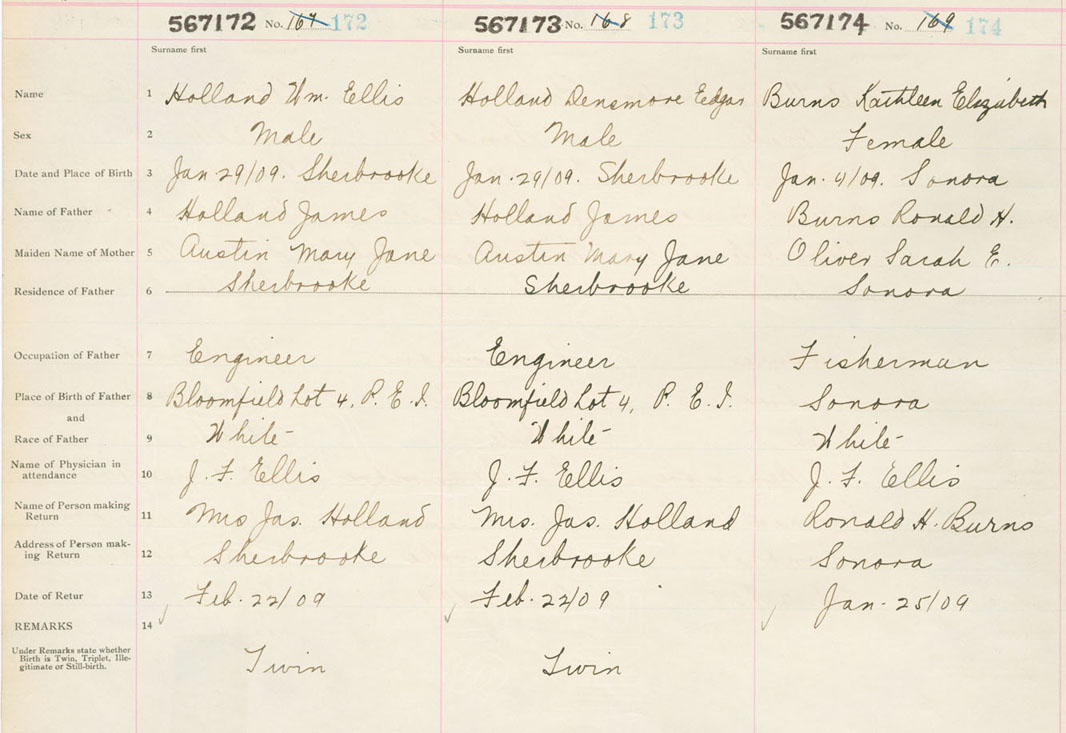 567172 No. 167 172 567173 No. 168 173 567174 No. 169 174
Surname first Surname first Surname first
Name 1 Holland Wm. Ellis Holland Densmore Eedgar Burns Kathleen Elizabeth
Sex 2 Male Male Female
Date and Place of Birth 3 Jan 29/09. Sherbrooke Jan. 29/09. Sherbrooke Jan. 4/09. Sonora
Name of Father 4 Holland James Holland James Burns Ronald H.
Maiden Name of Mother 5 Austin Mary Jane Austin Mary Jane Oliver Sarah E.
Residence of Father 6 Sherbrooke Sherbrooke Sonora
Occupation of Father 7 Engineer Engineer Fisherman
Place of Birth of Father 8 Bloomfield Lot 4, P. E. I. Bloomfield Lot 4, P. E. I. Sonora
and
Race of Father 9 White White White
Name of Physician in
attendance 10 J. F. Ellis J. F. Ellis J. F. Ellis
Name of Person making
Return 11 Mrs Jas. Holland Mrs. Jas. Holland Ronald H. Burns
Address of Person mak-
ing Return 12 Sherbrooke Sherbrooke Sonora
Date of Retur 13 Feb. 22/09 Feb. 22/09 Jan. 25/09
REMARKS 14
Under Remarks state whether
Birth is Twin, Triplet, Ille-
gitimate or Still-birth. Twin Twin